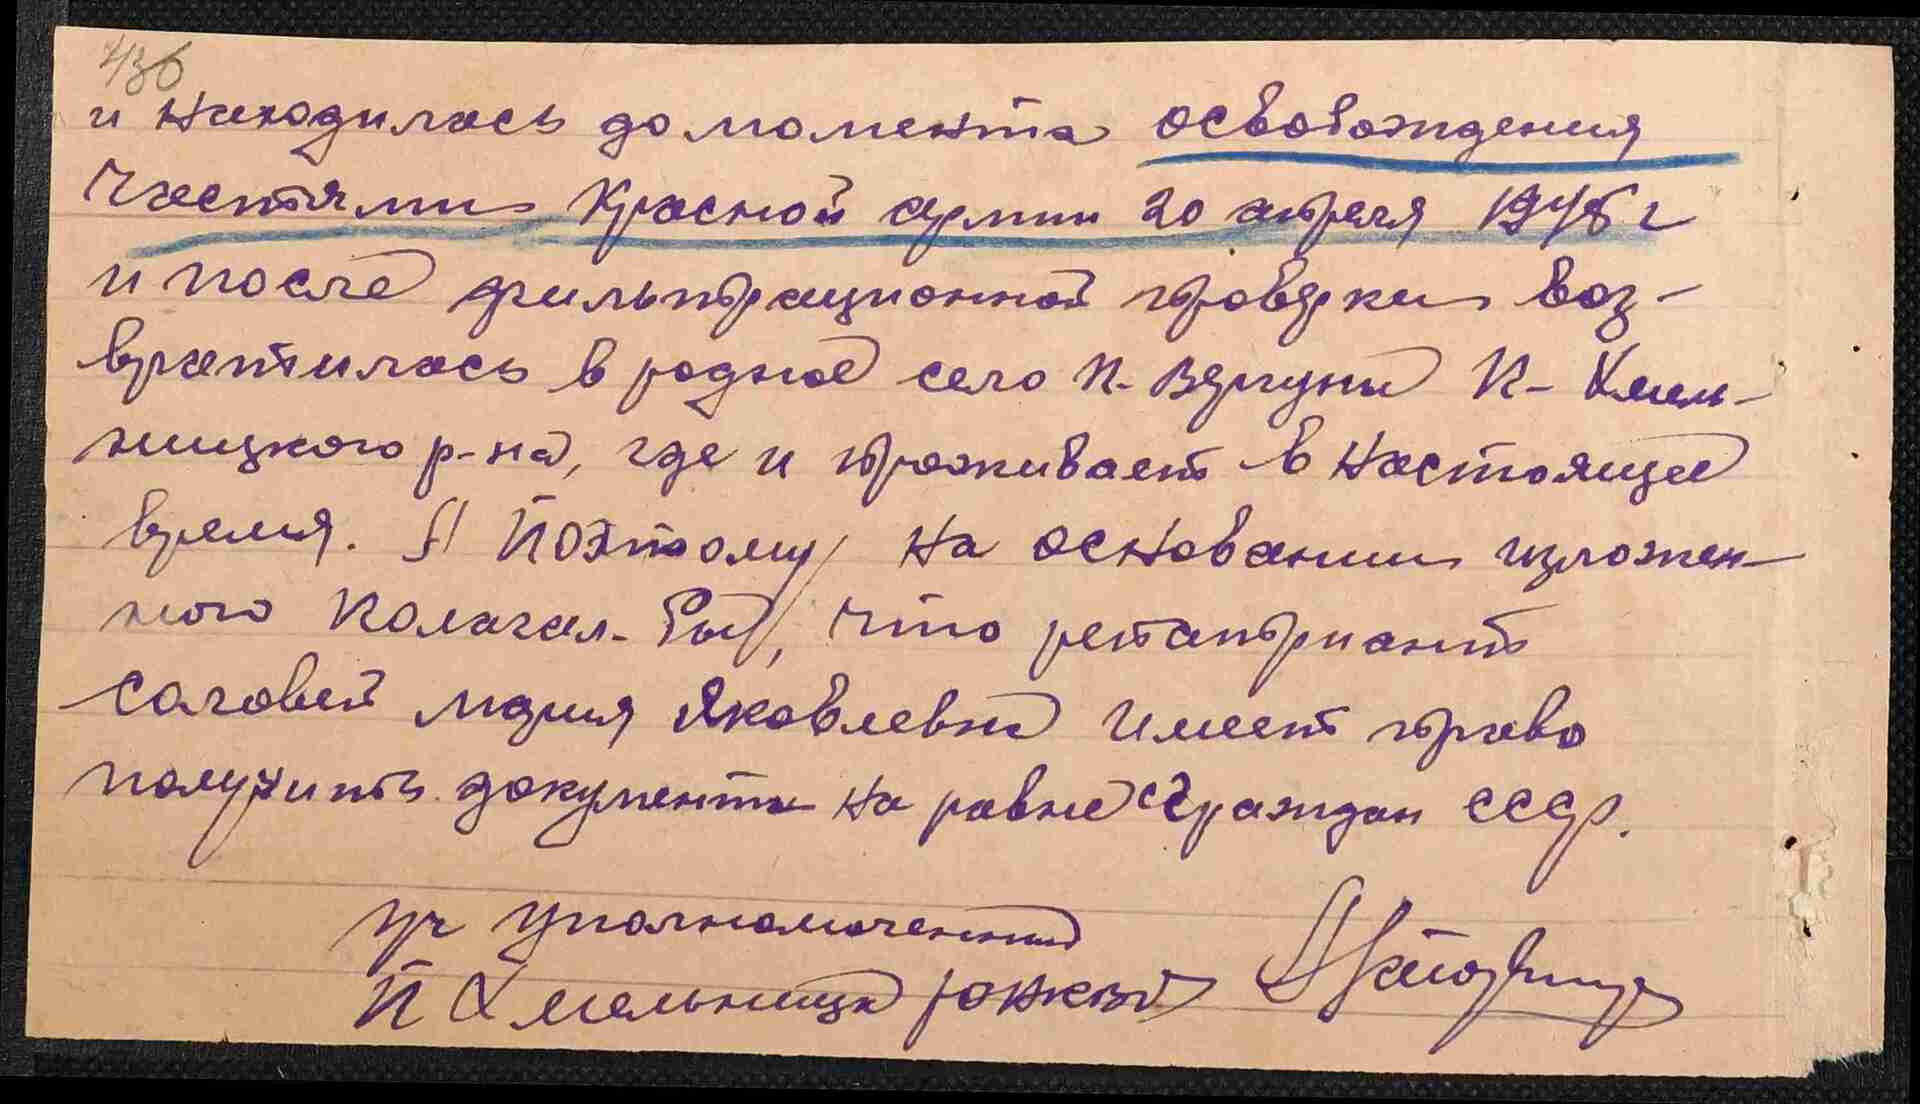 436
и находилась до момента освобождения
частями Красной армии 20 апреля 1945 г
и после фильтрационной проверки воз-
вратилась в родное село П. Вергуны П- Хмель-
ницкого р-на, где и проживает в настоящее
время. А Поэтому на основании изложен-
ного Полагал-бы, что репатриант
Соловей Мария Яковлевна имеет право
получить документы на равне с граждан СССР.
уч уполномоченный
П Хмельницк РОНКВД